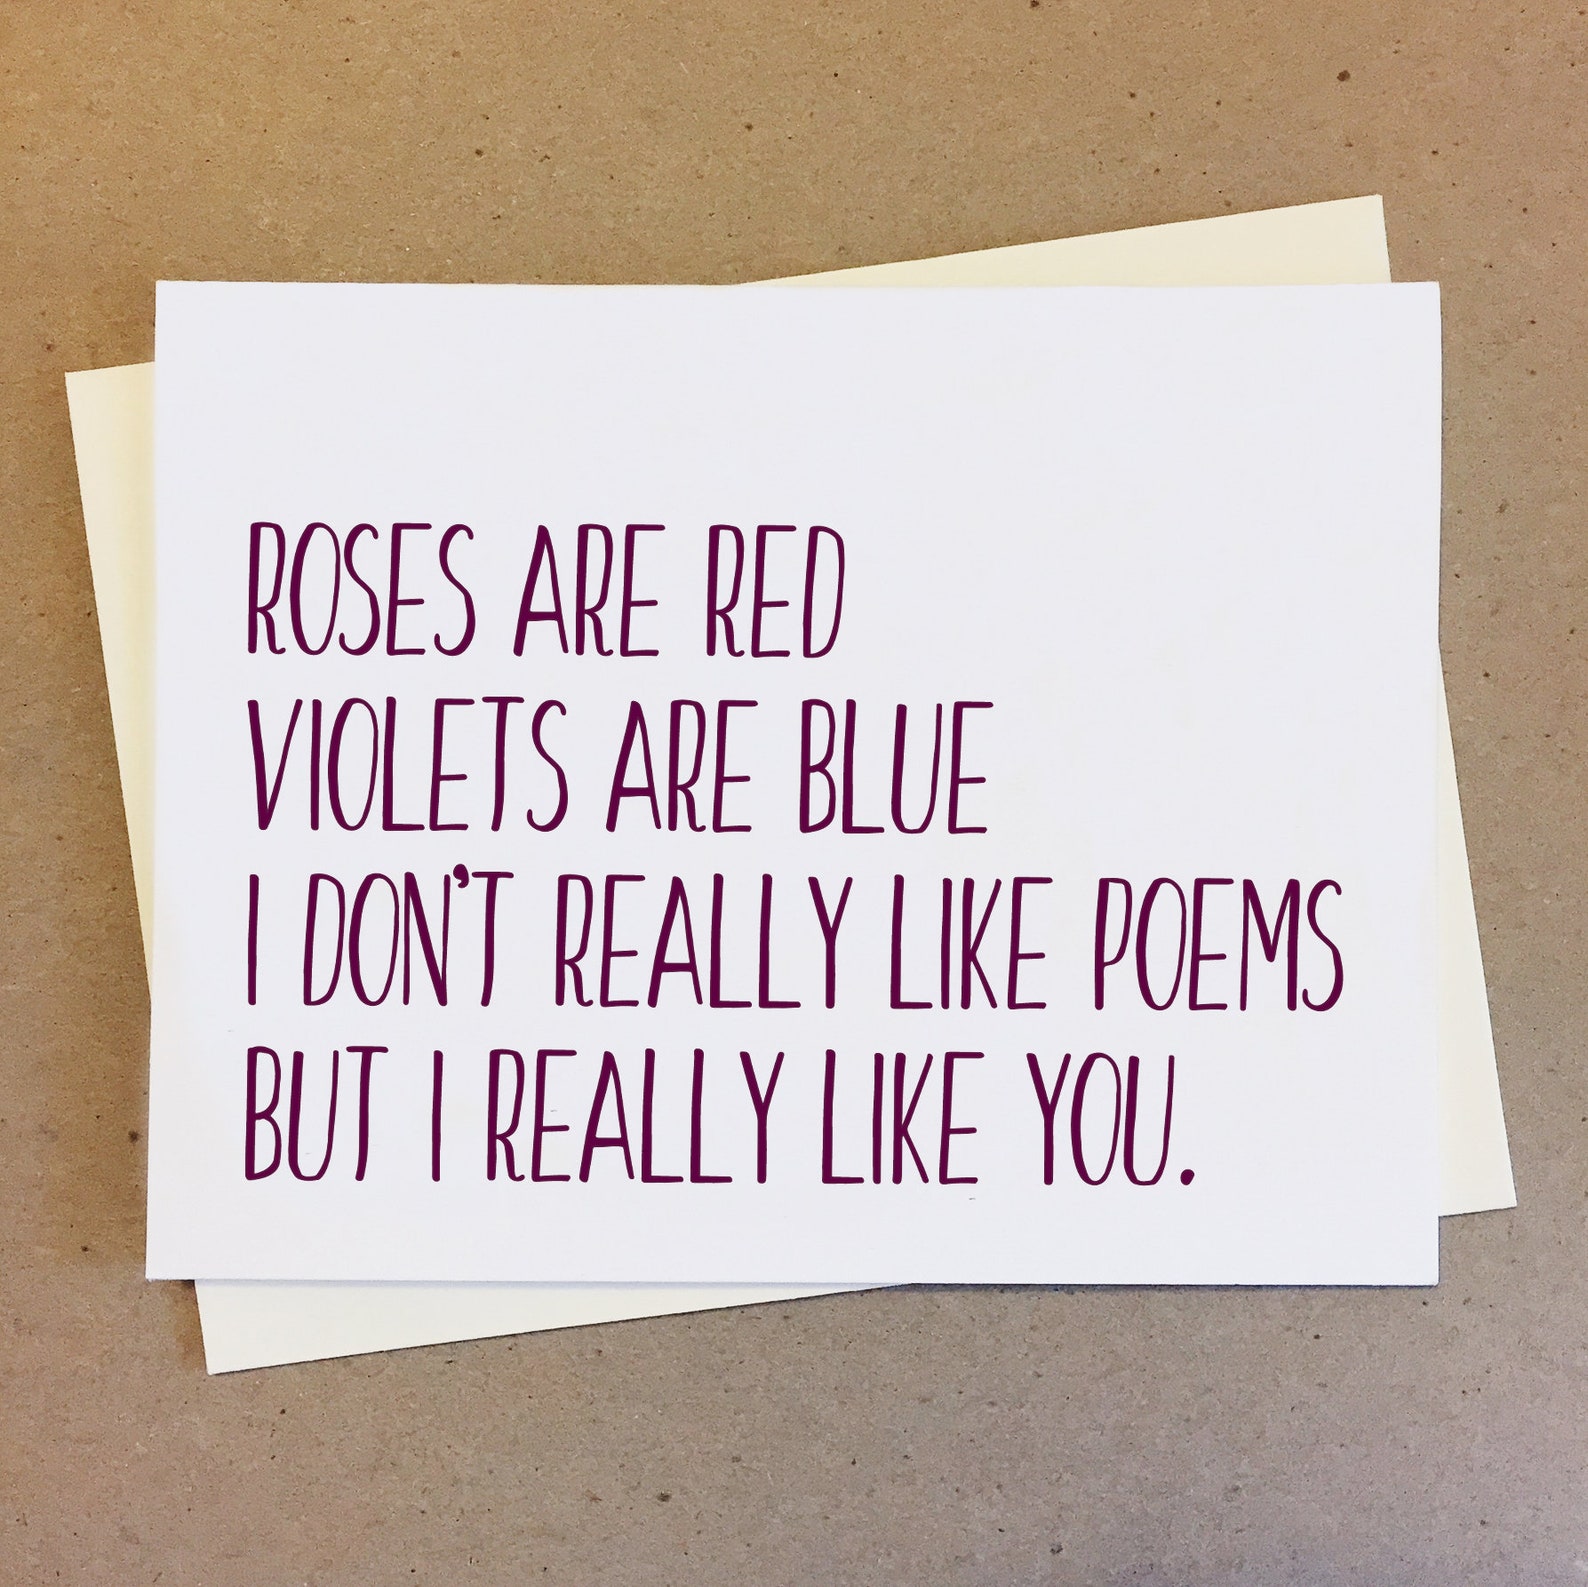 ROSES ARE RED
VIOLETS ARE BLUE
I DON'T REALLY LIKE POEMS
BUT I REALLY LIKE YOU.